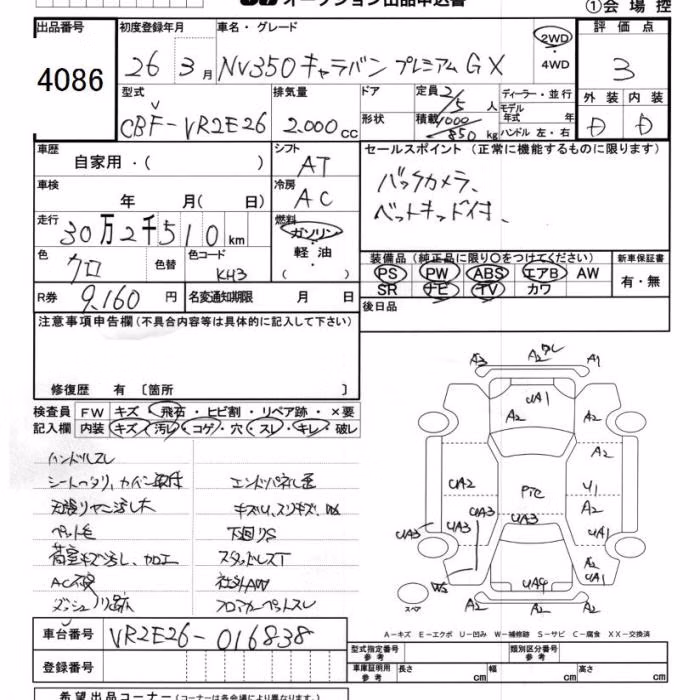 オークション出品申込書
①会場控
出品番号
4086
初度登録年月
26 3月
車名・グレード
NV350キャラバン プレミアム GX
2WD
・
4WD
評価点
3
外装 内装
D D
型式
CBF-VR2E26
排気量
2.000cc
ドア
形状
定員 2/5人
積載 1000/850kg
ディーラー・並行
モデル
年式 年
ハンドル 左・右
車歴
自家用・( )
シフト
AT
車検
年 月( 日)
冷房
AC
走行
30万2千510km
燃料
ガソリン
・
軽油
・
( )
色
クロ
色替
色コード
KH3
R券
9,160円
名変通知期限 月 日
セールスポイント(正常に機能するものに限ります)
バックカメラ、
ベットキッド付き、
装備品(純正品に限り○をつけてください)
PS PW ABS エアB AW
SR ナビ TV カワ
新車保証書
有・無
後日品
注意事項申告欄(不具合内容等は具体的に記入して下さい)
修復歴 有 〔箇所 〕
検査員
記入欄
FW キズ・飛石・ヒビ割・リペア跡・×要
内装 キズ・汚レ・コゲ・穴・スレ・キレ・破レ
ハンドルスレ
ペット毛
荷室キズ汚し、加工
キズU、スリキズ、
下回りS
スタッドレスT
社外AW
フロアカーペットスレ
A3 A2 A1
UA1
A2 A2
A2
UA2 PTC U1
A2
UA3 UA3 UA3 UA3 UA1
A2
UA1
WS UA9
スペア A2 A2 A2
A-キズ E-エクボ U-凹み W-補修跡 S-サビ C-腐食 XX-交換済
車台番号
VR2E26-016838
登録番号
型式指定番号
参考
類別区分番号
参考
車庫証明用
参考
長さ cm 幅 cm 高さ cm
希望出品コーナー(コーナーは各会場により異なります。)